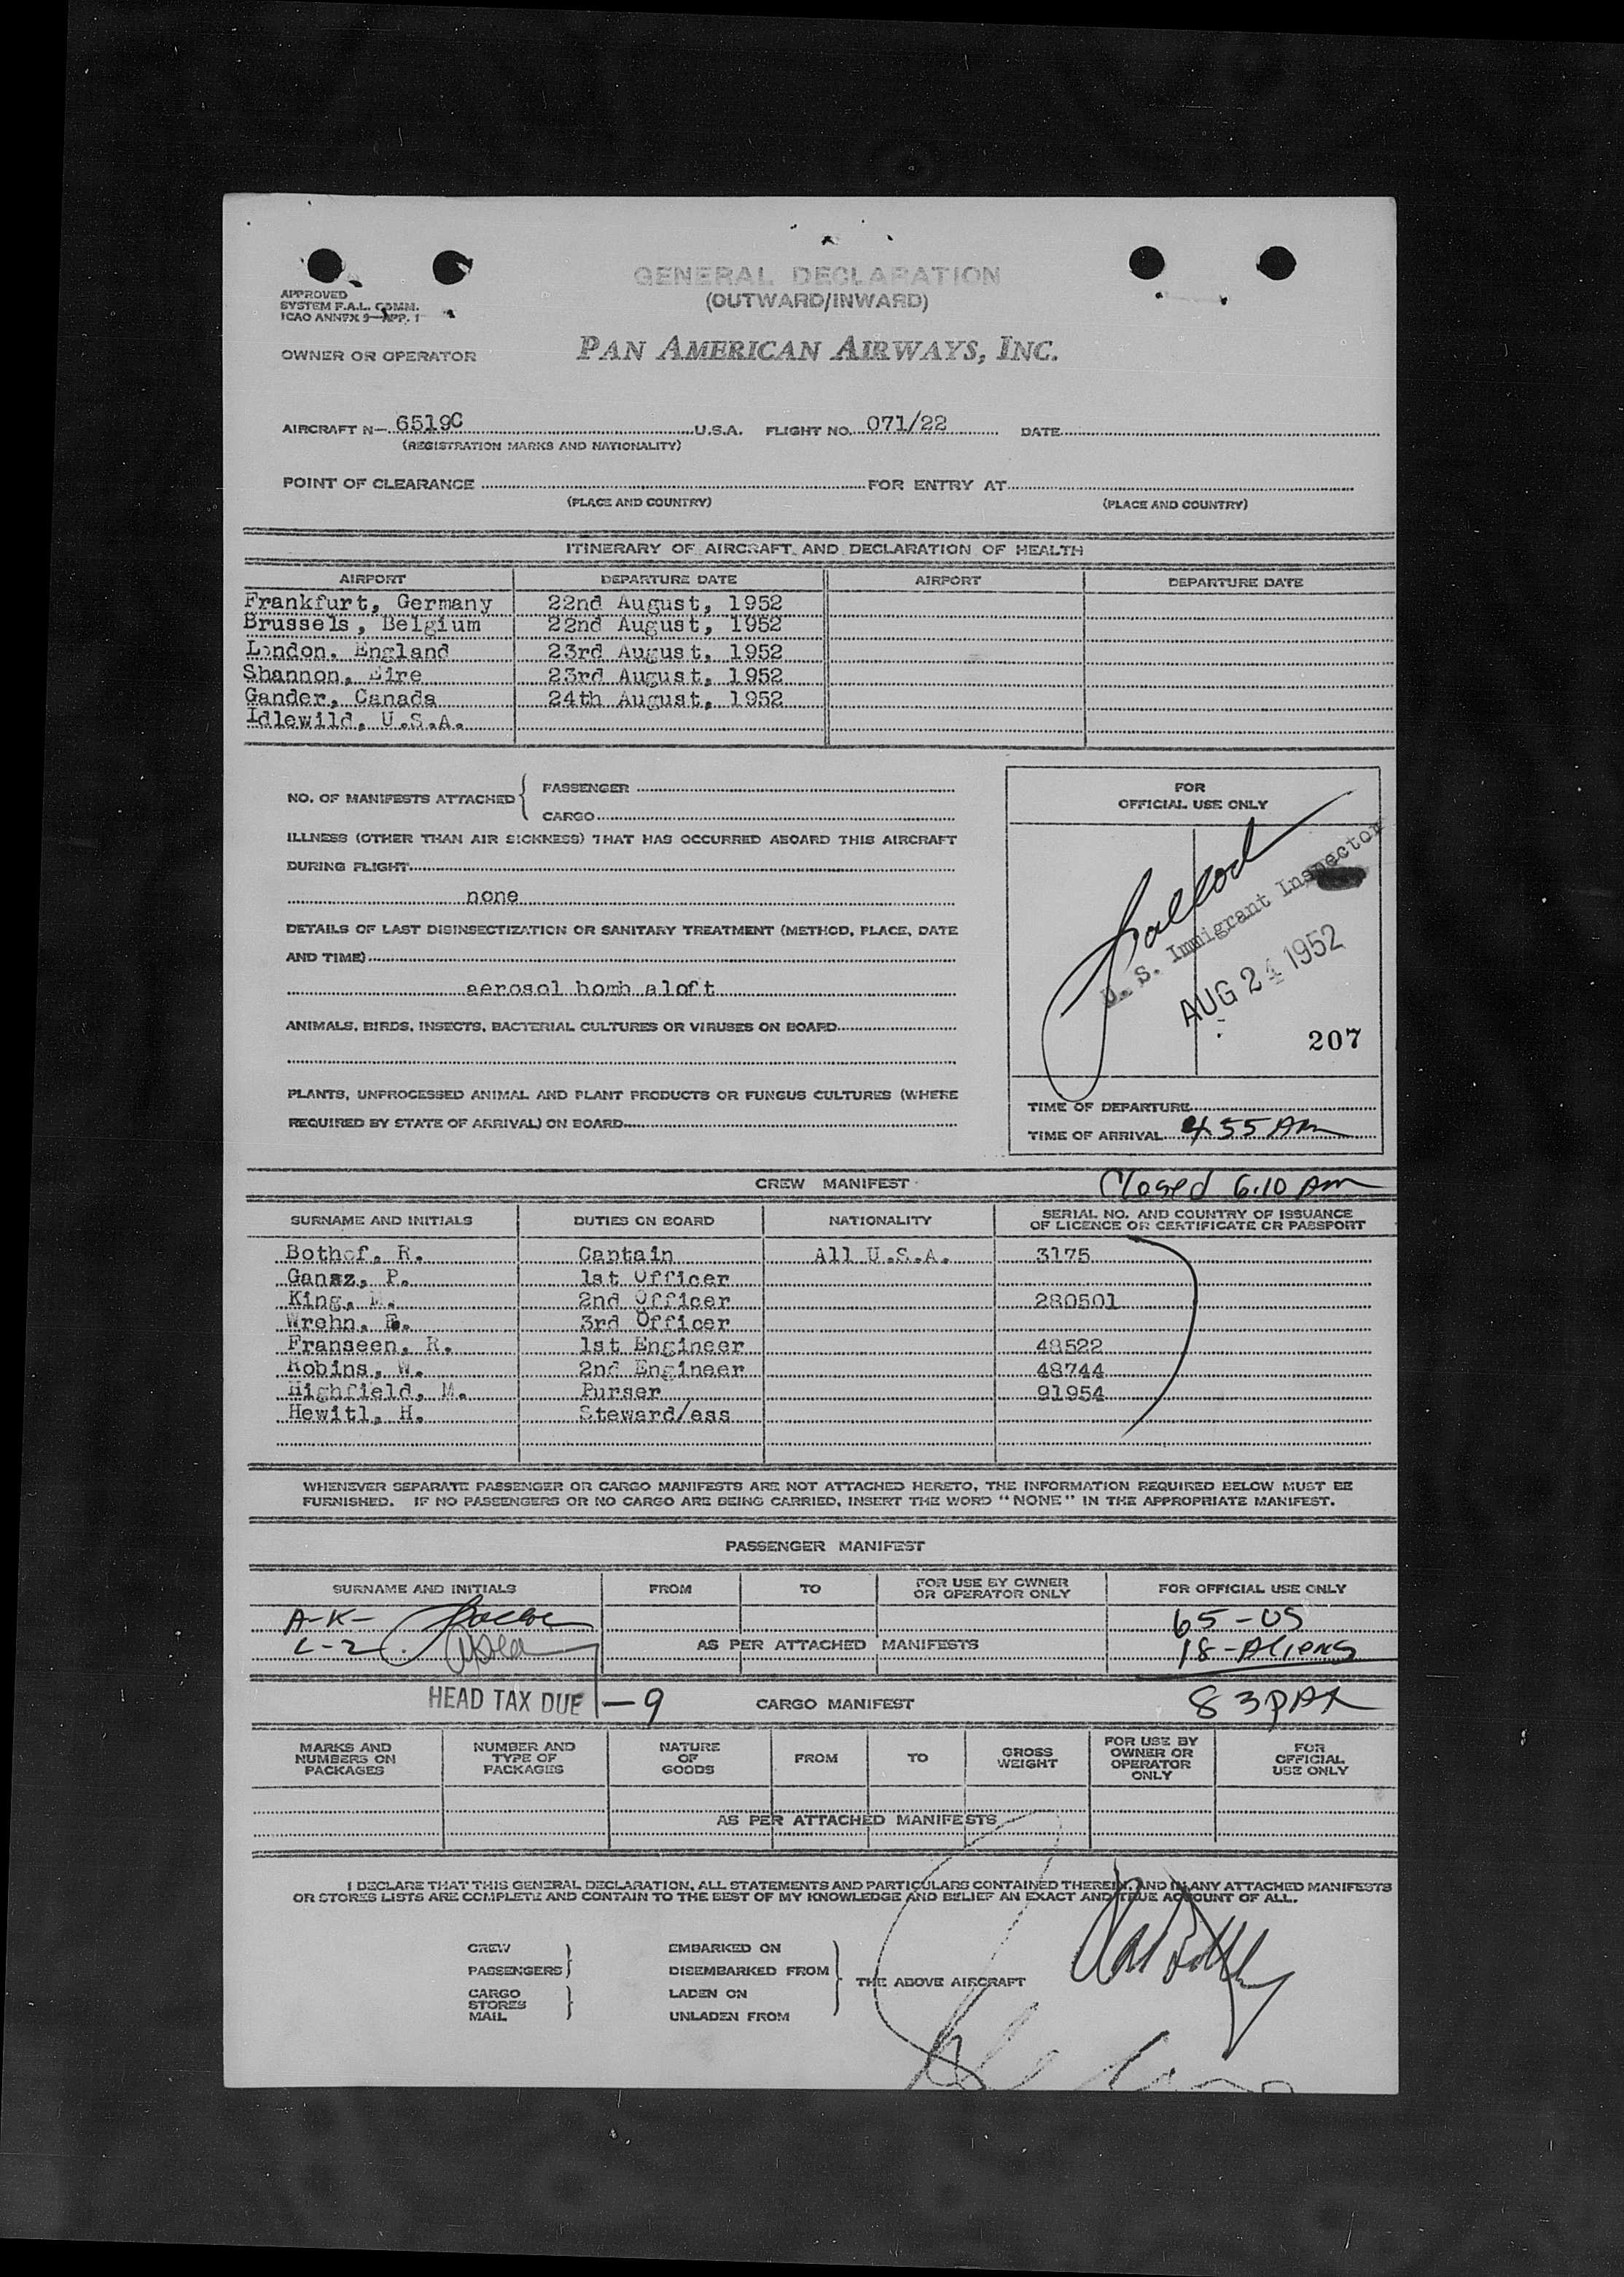 GENERAL DECLARATION
(OUTWARD/INWARD)
APPROVED
SYSTEM F.A.L. COMM.
ICAO ANNEX 9—APP. 1
OWNER OR OPERATOR PAN AMERICAN AIRWAYS, INC.
AIRCRAFT N— 6519C U.S.A. FLIGHT NO. 071/22 DATE
(REGISTRATION MARKS AND NATIONALITY)
POINT OF CLEARANCE FOR ENTRY AT
(PLACE AND COUNTRY) (PLACE AND COUNTRY)
ITINERARY OF AIRCRAFT AND DECLARATION OF HEALTH
AIRPORT DEPARTURE DATE AIRPORT DEPARTURE DATE
Frankfurt, Germany 22nd August, 1952
Brussels, Belgium 22nd August, 1952
London, England 23rd August, 1952
Shannon, Eire 23rd August, 1952
Gander, Canada 24th August, 1952
Idlewild, U.S.A.
NO. OF MANIFESTS ATTACHED { PASSENGER
CARGO
ILLNESS (OTHER THAN AIR SICKNESS) THAT HAS OCCURRED ABOARD THIS AIRCRAFT
DURING FLIGHT
none
DETAILS OF LAST DISINSECTIZATION OR SANITARY TREATMENT (METHOD, PLACE, DATE
AND TIME)
aerosol bomb aloft
ANIMALS, BIRDS, INSECTS, BACTERIAL CULTURES OR VIRUSES ON BOARD
PLANTS, UNPROCESSED ANIMAL AND PLANT PRODUCTS OR FUNGUS CULTURES (WHERE
REQUIRED BY STATE OF ARRIVAL) ON BOARD
FOR
OFFICIAL USE ONLY
U. S. Immigrant Inspector
AUG 24 1952
207
TIME OF DEPARTURE
TIME OF ARRIVAL 4 55 AM
CREW MANIFEST Closed 6.10 AM
SURNAME AND INITIALS DUTIES ON BOARD NATIONALITY SERIAL NO. AND COUNTRY OF ISSUANCE
OF LICENCE OR CERTIFICATE OR PASSPORT
Bothof, R. Captain All U.S.A. 3175
Ganaz, P. 1st Officer
King, M. 2nd Officer 280501
Wrehn, E. 3rd Officer
Franseen, R. 1st Engineer 48522
Robins, W. 2nd Engineer 48744
Highfield, M. Purser 91954
Hewitl, H. Steward/ess
WHENEVER SEPARATE PASSENGER OR CARGO MANIFESTS ARE NOT ATTACHED HERETO, THE INFORMATION REQUIRED BELOW MUST BE
FURNISHED. IF NO PASSENGERS OR NO CARGO ARE BEING CARRIED, INSERT THE WORD "NONE" IN THE APPROPRIATE MANIFEST.
PASSENGER MANIFEST
SURNAME AND INITIALS FROM TO FOR USE BY OWNER
OR OPERATOR ONLY FOR OFFICIAL USE ONLY
A-K- 65-US
L-Z AS PER ATTACHED MANIFESTS 18-Aliens
HEAD TAX DUE —9 CARGO MANIFEST 83 PAX
MARKS AND
NUMBERS ON
PACKAGES
NUMBER AND
TYPE OF
PACKAGES
NATURE
OF
GOODS
FROM TO
GROSS
WEIGHT
FOR USE BY
OWNER OR
OPERATOR
ONLY
FOR
OFFICIAL
USE ONLY
AS PER ATTACHED MANIFESTS
I DECLARE THAT THIS GENERAL DECLARATION, ALL STATEMENTS AND PARTICULARS CONTAINED THEREIN, AND IN ANY ATTACHED MANIFESTS
OR STORES LISTS ARE COMPLETE AND CONTAIN TO THE BEST OF MY KNOWLEDGE AND BELIEF AN EXACT AND TRUE ACCOUNT OF ALL.
CREW EMBARKED ON
PASSENGERS DISEMBARKED FROM
THE ABOVE AIRCRAFT
CARGO LADEN ON
STORES
MAIL UNLADEN FROM